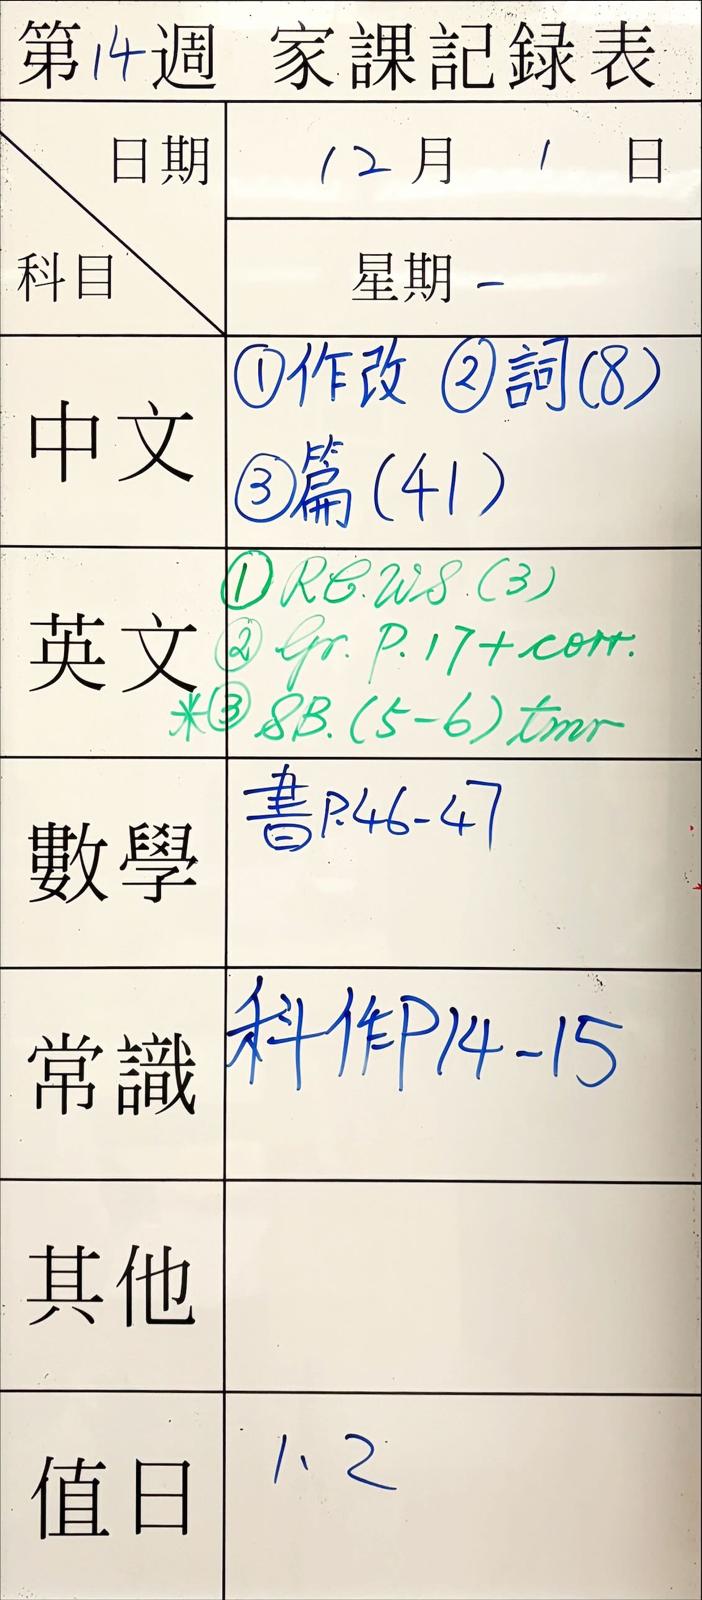 第14週 家課記録表
日期 12月 1 日
科目 星期 一
中文 ①作改 ②詞(8)
③篇(41)
英文 ① RC.WS.(3)
② Gr. P.17+corr.
*③ SB.(5-6) tmr
數學 書P.46-47
常識 科作P14-15
其他
值日 1、2